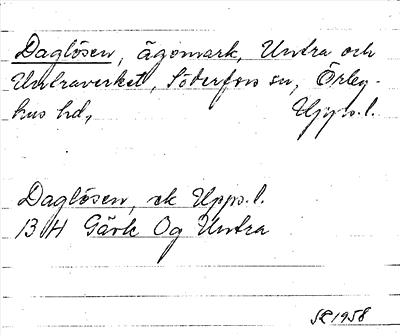 Daglösen, ägomark, Untra och
Untraverket, Söderfors sn, Örby-
hus hd, Upps.l.
Daglösen, ek Upps.l.
13 H Gävle Og Untra
1958